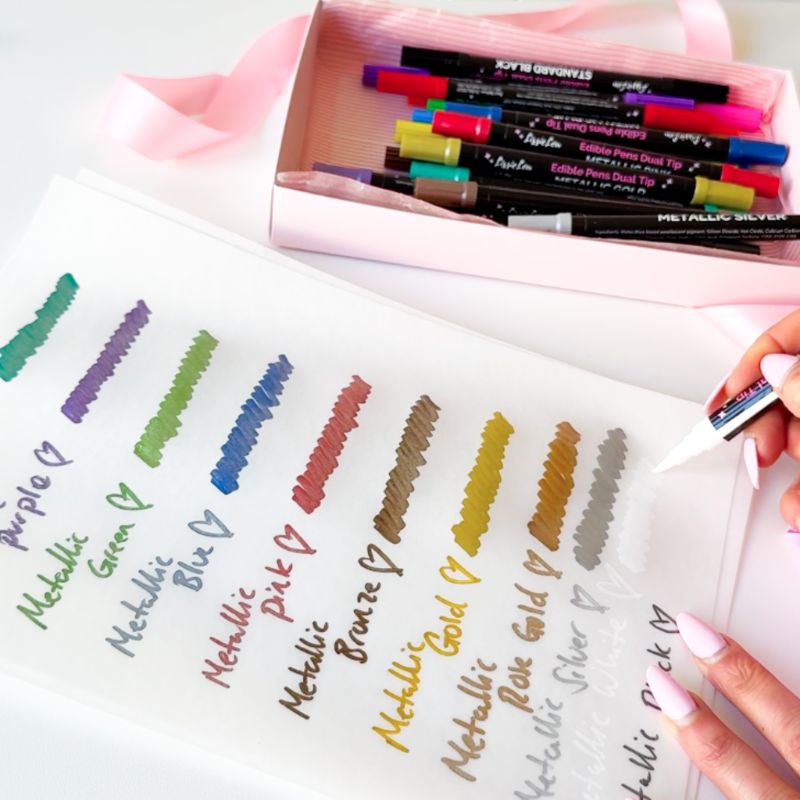 STANDARD BLACK
Edible Pens Dual Tip
Edible Pens Dual Tip
METALLIC PINK
Edible Pens Dual Tip
METALLIC GOLD
METALLIC SILVER
Purple
Metallic
Green
Metallic
Blue
Metallic
Pink
Metallic
Bronze
Metallic
Gold
Metallic
Rose Gold
Metallic Silver
Metallic White